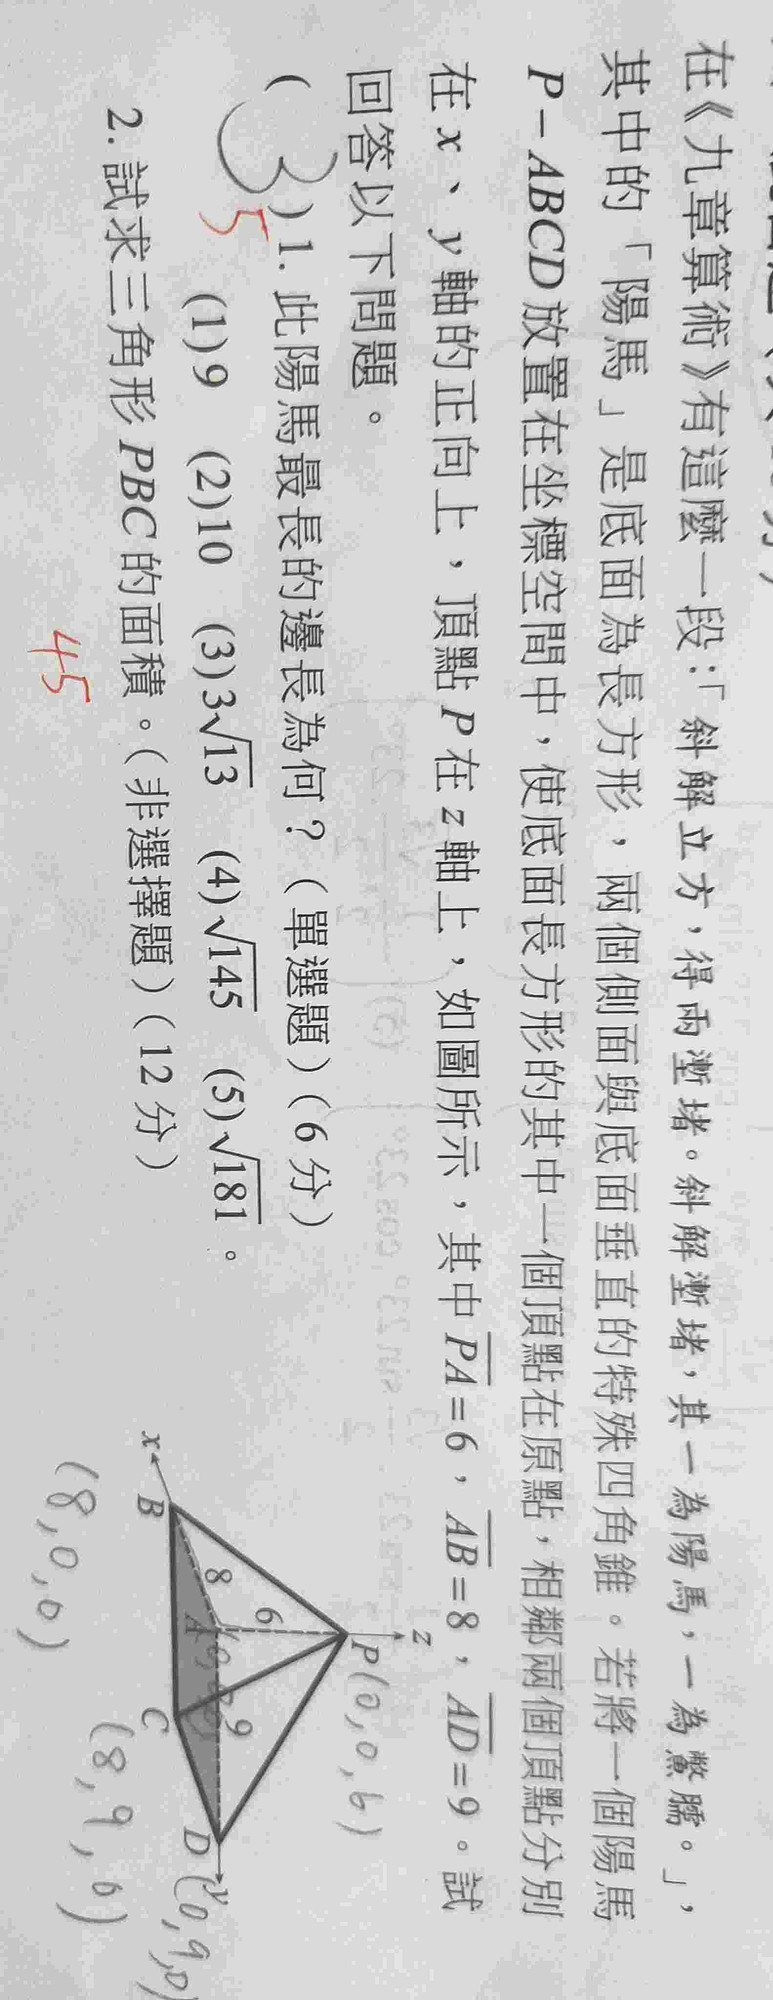 在《九章算術》有這麼一段:「斜解立方,得兩塹堵。斜解塹堵,其一為陽馬,一為鱉臑。」,
其中的「陽馬」是底面為長方形,兩個側面與底面垂直的特殊四角錐。若將一個陽馬
P-ABCD 放置在坐標空間中,使底面長方形的其中一個頂點在原點,相鄰兩個頂點分別
在 x、y 軸的正向上,頂點 P 在 z 軸上,如圖所示,其中 \overline{PA}=6,\overline{AB}=8,\overline{AD}=9。試
回答以下問題。
( 3 ) 1. 此陽馬最長的邊長為何?(單選題)(6 分)
5
(1)9 (2)10 (3)3√13 (4)√145 (5)√181。
2. 試求三角形 PBC 的面積。(非選擇題)(12 分)
45
z
P (0,0,6)
6
8
A
9
x
B
C
D
y
(8,0,0)
(8,9,0)
(0,9,0)